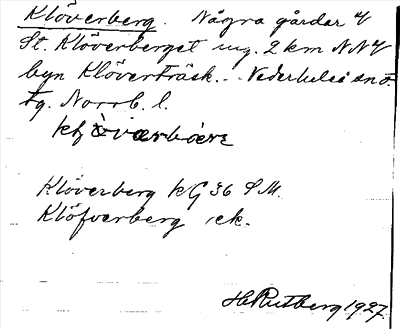 Klöverberg. Några gårdar V
St. Klöverberget ung. 2 km NNV
byn Klöverträsk. - Nederluleå sn o.
tg. Norrb. l.
Klöverberg kG 36 S M.
Klöfverberg ek.
H. Rutberg 1927.